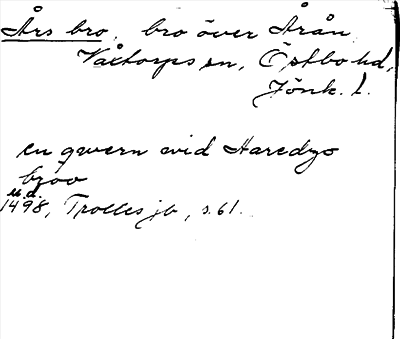 Års bro, bro över Årån,
Våxtorps sn, Östbo hd,
Jönk. l.
en qwern wid Haredzs
broo
u.d.
1498, Trolles jb, s. 61.